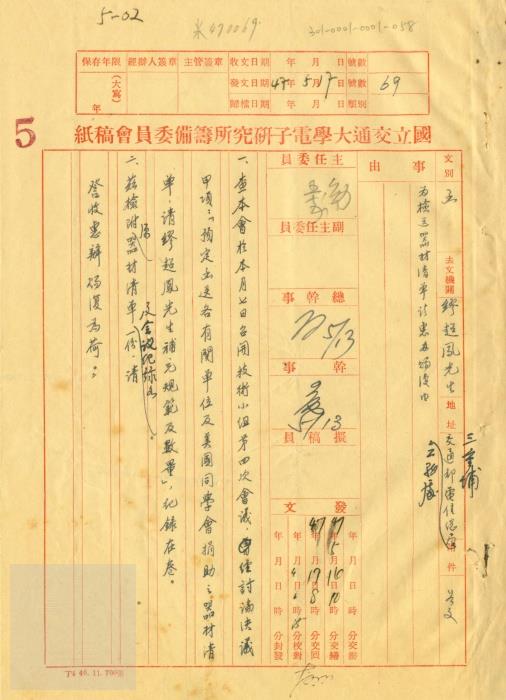 5-02
米470069.
301-0001-0001-058
保存年限
(大寫)
年
經辦人簽章
主管簽章
收文日期 年 月 日
發文日期 47年5月17日
歸檔日期 年 月 日
號數
號數 69
類別
5
國立交通大學電子研究所籌備委員會稿紙
文別
去文機關 繆超鳳先生
地址
三重埔
交通部電信總
件
事由
為檢送器材清單請惠
主任委員
副主任委員
總幹事
5/13
幹事
5/13
擬稿員
發文
年月日時分交擬
年月日時分交繕
年月日時分校對
年月日時分封發
一、查本會於本月七日召開技術小組第四次會議,曾經討論決議
甲項:「預定出送各有關單位及美國同學會捐助之器材清
單,請繆超鳳先生補充規範及數量」,紀錄在卷。
二、茲檢附原器材清單及會議紀錄各一份,請
詧收惠辦賜復為荷。
T4 46.11.700